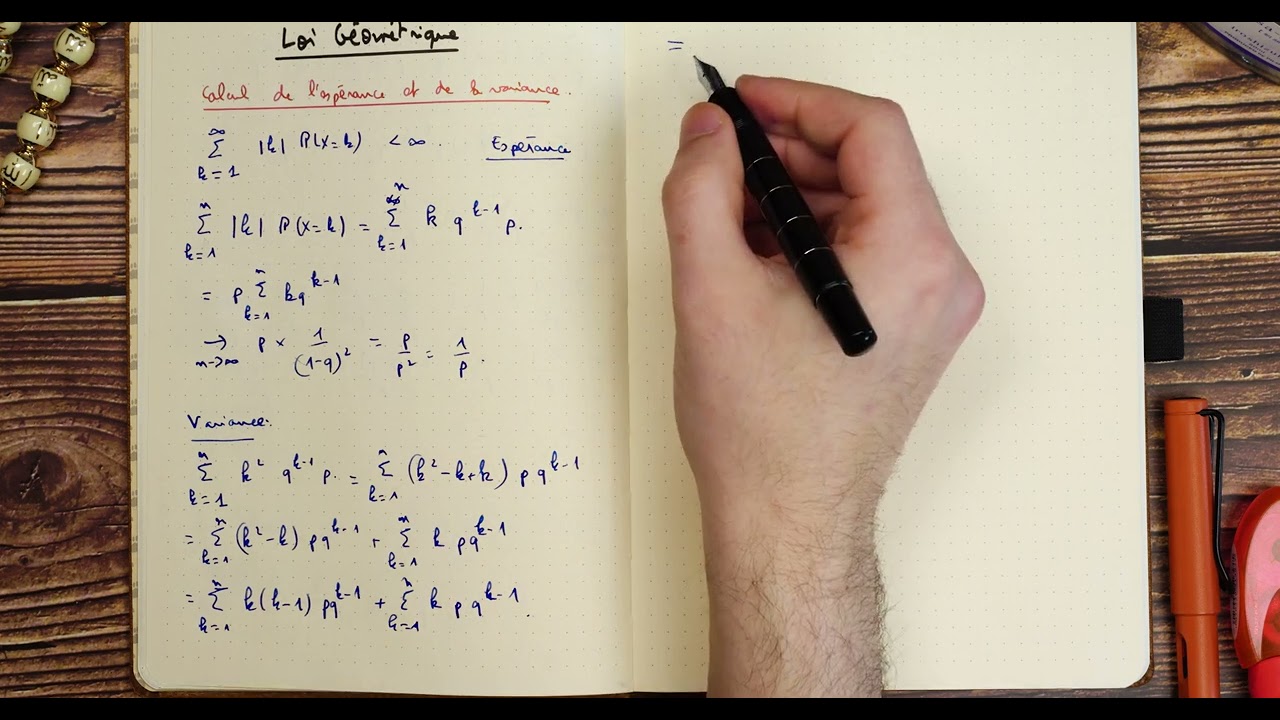 Loi Géométrique
Calcul de l'espérance et de la variance.
∞ ∑ k=1 |k| P(X=k) < ∞. Espérance
n ∑ k=1 |k| P(X=k) = n ∑ k=1 k q^{k-1} p.
= p n ∑ k=1 k q^{k-1}
→ n→∞ p × 1/(1-q)² = p/p² = 1/p.
Variance.
n ∑ k=1 k² q^{k-1} p. = n ∑ k=1 (k²-k+k) p q^{k-1}
= n ∑ k=1 (k²-k) p q^{k-1} + n ∑ k=1 k p q^{k-1}
= n ∑ k=1 k(k-1) p q^{k-1} + n ∑ k=1 k p q^{k-1}.
=